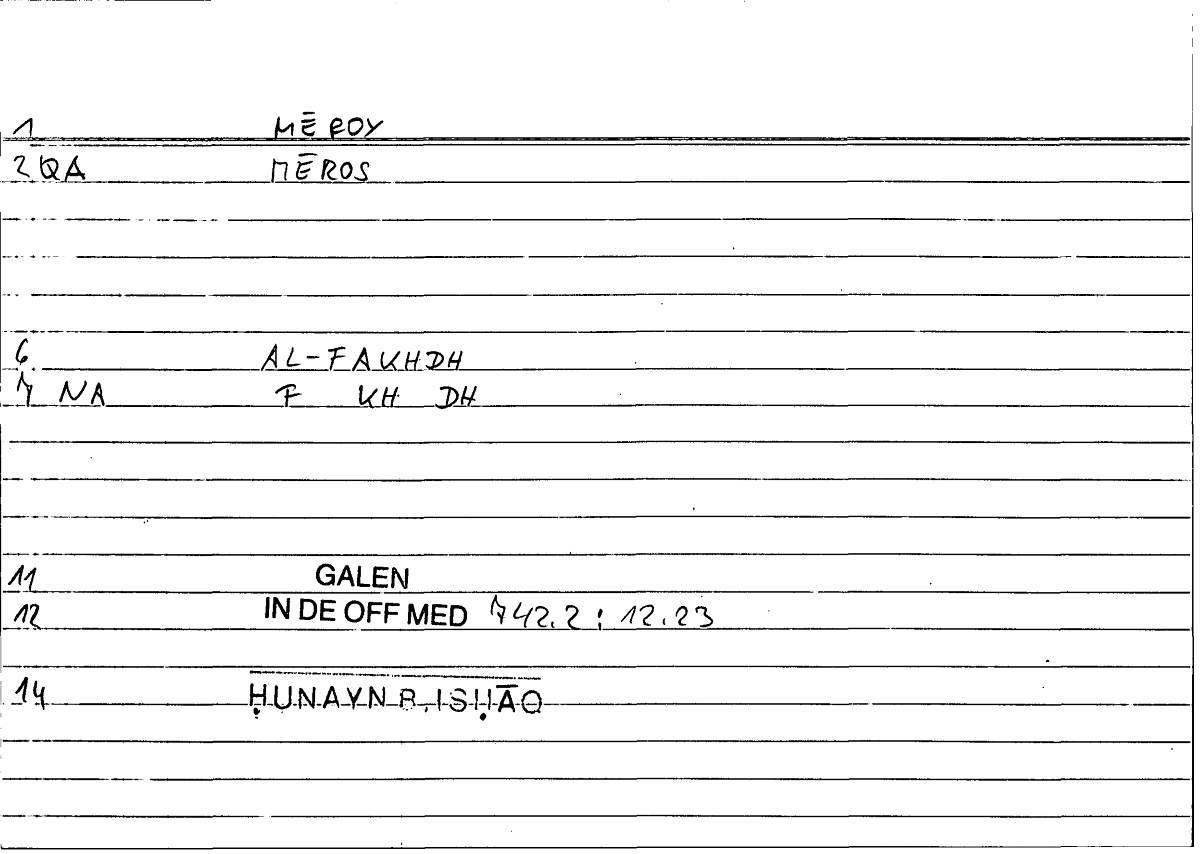 1 MĒROY
2 QA MĒROS
6 AL-FAKHDH
7 NA F KH DH
11 GALEN
12 IN DE OFF MED 742.2 : 12.23
14 ḤUNAYN B. ISḤĀQ